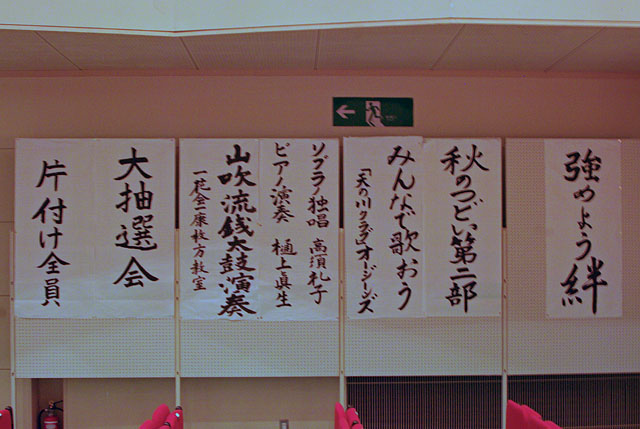 強めよう絆
秋のつどい第二部
みんなで歌おう
「天の川クラブ」オージーンズ
ソプラノ独唱 高須礼子
ピアノ演奏 樋上眞生
山吹流銭太鼓演奏
一花会康枚方教室
大抽選会
片付け全員